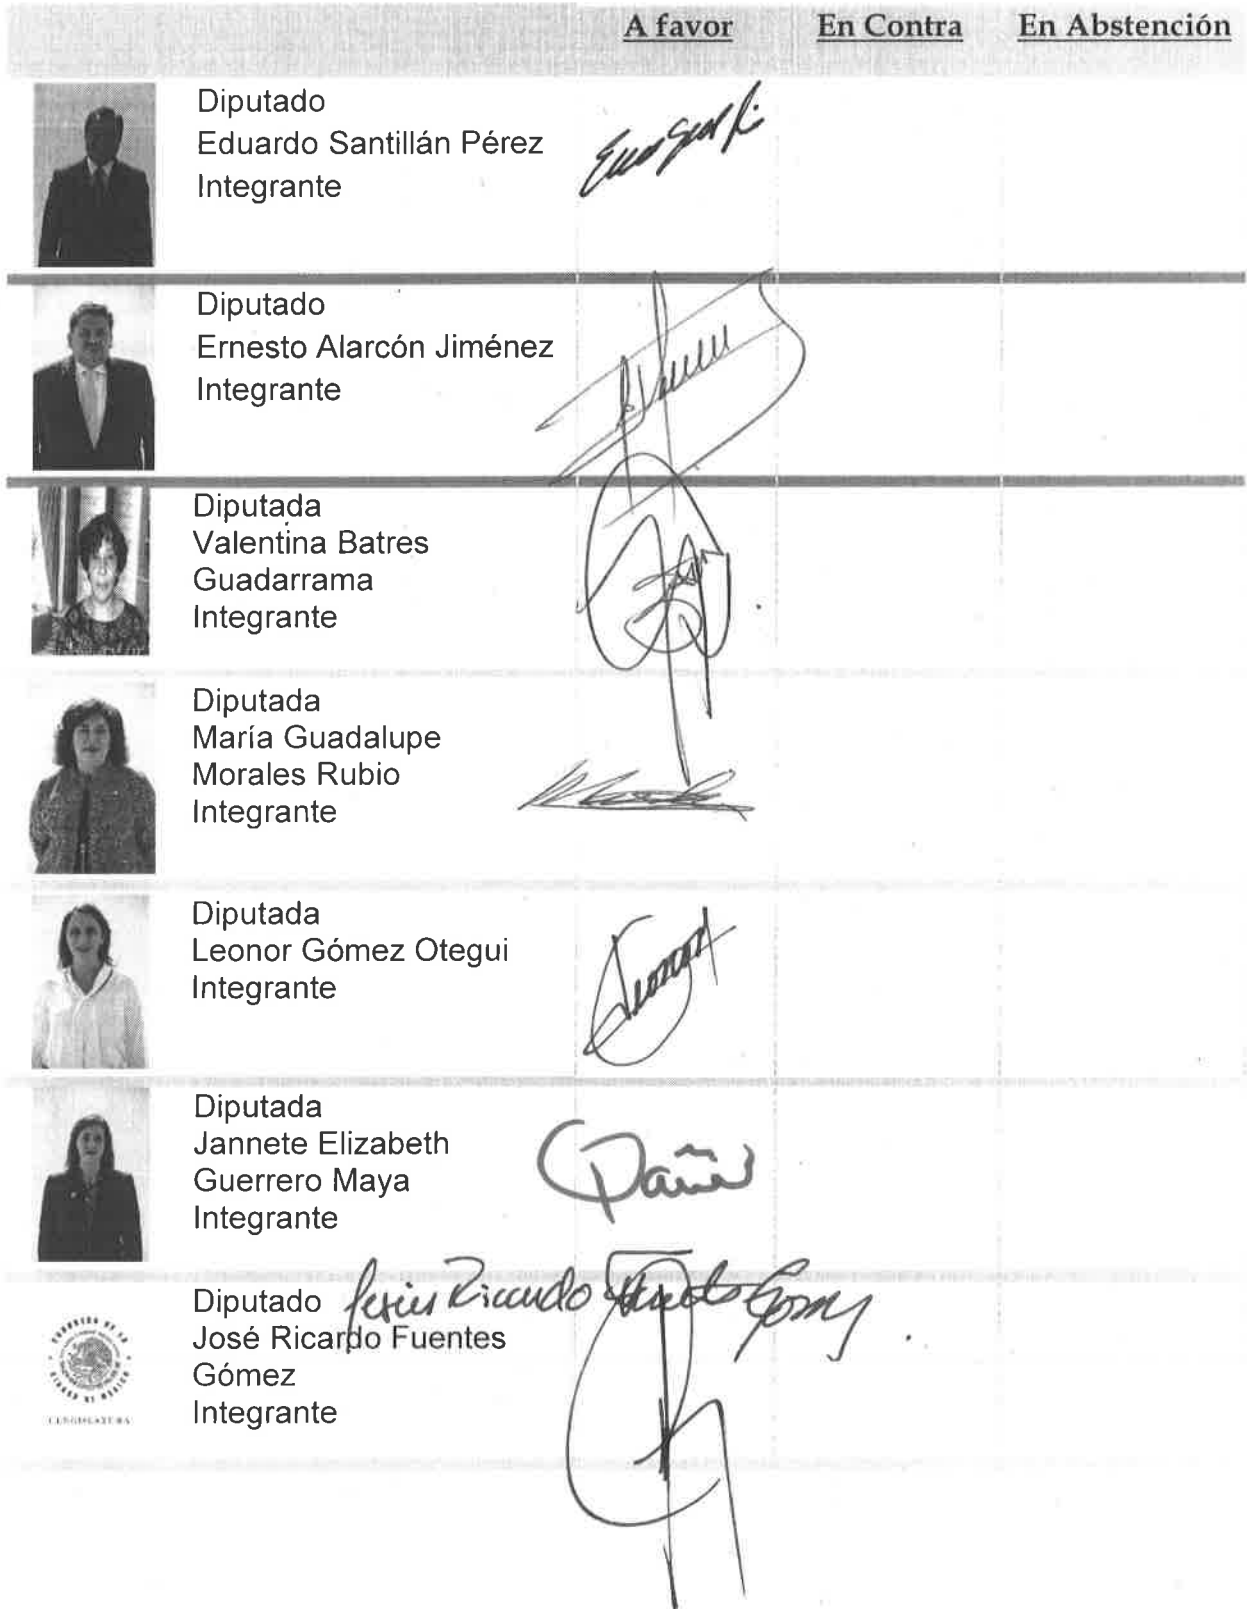 A favor En Contra En Abstención
Diputado
Eduardo Santillán Pérez
Integrante
Diputado
Ernesto Alarcón Jiménez
Integrante
Diputada
Valentina Batres
Guadarrama
Integrante
Diputada
María Guadalupe
Morales Rubio
Integrante
Diputada
Leonor Gómez Otegui
Integrante
Leonor
Diputada
Jannete Elizabeth
Guerrero Maya
Integrante
Diputado
José Ricardo Fuentes
Gómez
Integrante
Ricardo
CONGRESO DE LA
CIUDAD DE MÉXICO
I LEGISLATURA